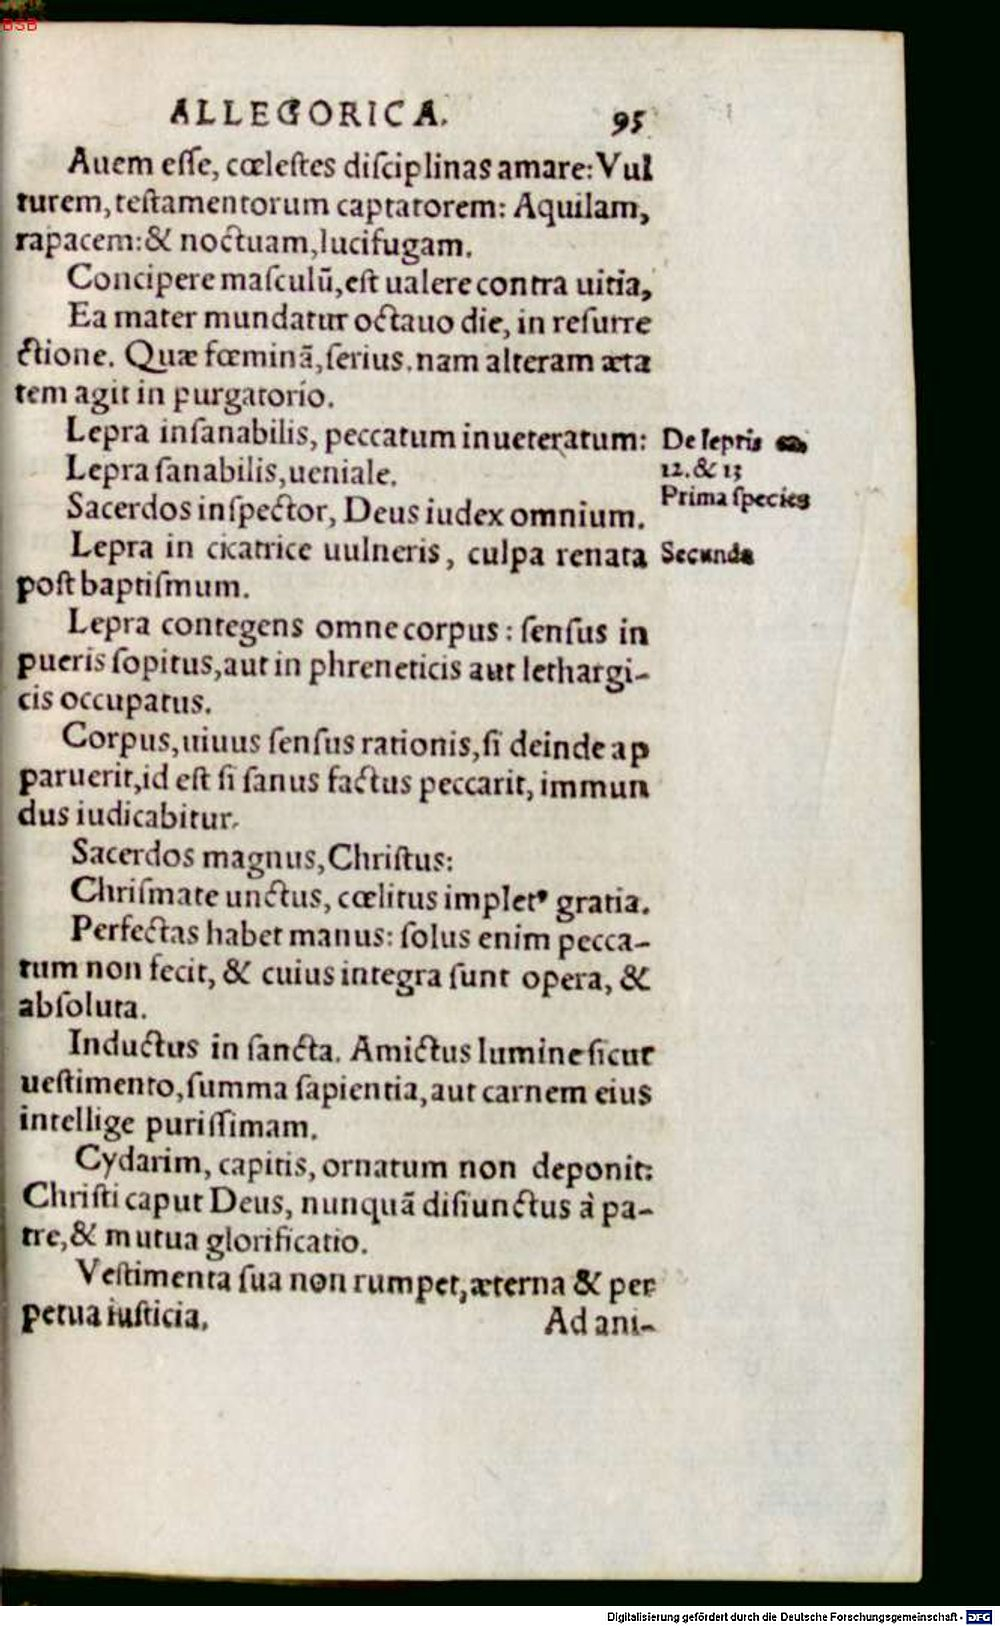 BSB
ALLEGORICA. 95
Auem eſſe, cœleſtes diſciplinas amare: Vul
turem, teſtamentorum captatorem: Aquilam,
rapacem: & noctuam, lucifugam.
Concipere maſculū, eſt ualere contra uitia,
Ea mater mundatur octauo die, in reſurre
ctione. Quæ fœminā, ſerius. nam alteram æta
tem agit in purgatorio.
Lepra inſanabilis, peccatum inueteratum: De lepris
Lepra ſanabilis, ueniale. 12. & 13
Sacerdos inſpector, Deus iudex omnium. Prima ſpecies
Lepra in cicatrice uulneris, culpa renata Secunda
poſt baptiſmum.
Lepra contegens omne corpus: ſenſus in
pueris ſopitus, aut in phreneticis aut lethargi-
cis occupatus.
Corpus, uiuus ſenſus rationis, ſi deinde ap
paruerit, id eſt ſi ſanus factus peccarit, immun
dus iudicabitur.
Sacerdos magnus, Chriſtus:
Chriſmate unctus, cœlitus implet⁹ gratia.
Perfectas habet manus: ſolus enim pecca-
tum non fecit, & cuius integra ſunt opera, &
abſoluta.
Inductus in ſancta. Amictus lumine ſicut
ueſtimento, ſumma ſapientia, aut carnem eius
intellige puriſſimam.
Cydarim, capitis, ornatum non deponit:
Chriſti caput Deus, nunquā diſiunctus à pa-
tre, & mutua glorificatio.
Veſtimenta ſua non rumpet, æterna & per
petua iuſticia. Ad ani-
Digitalisierung gefördert durch die Deutsche Forschungsgemeinschaft - DFG